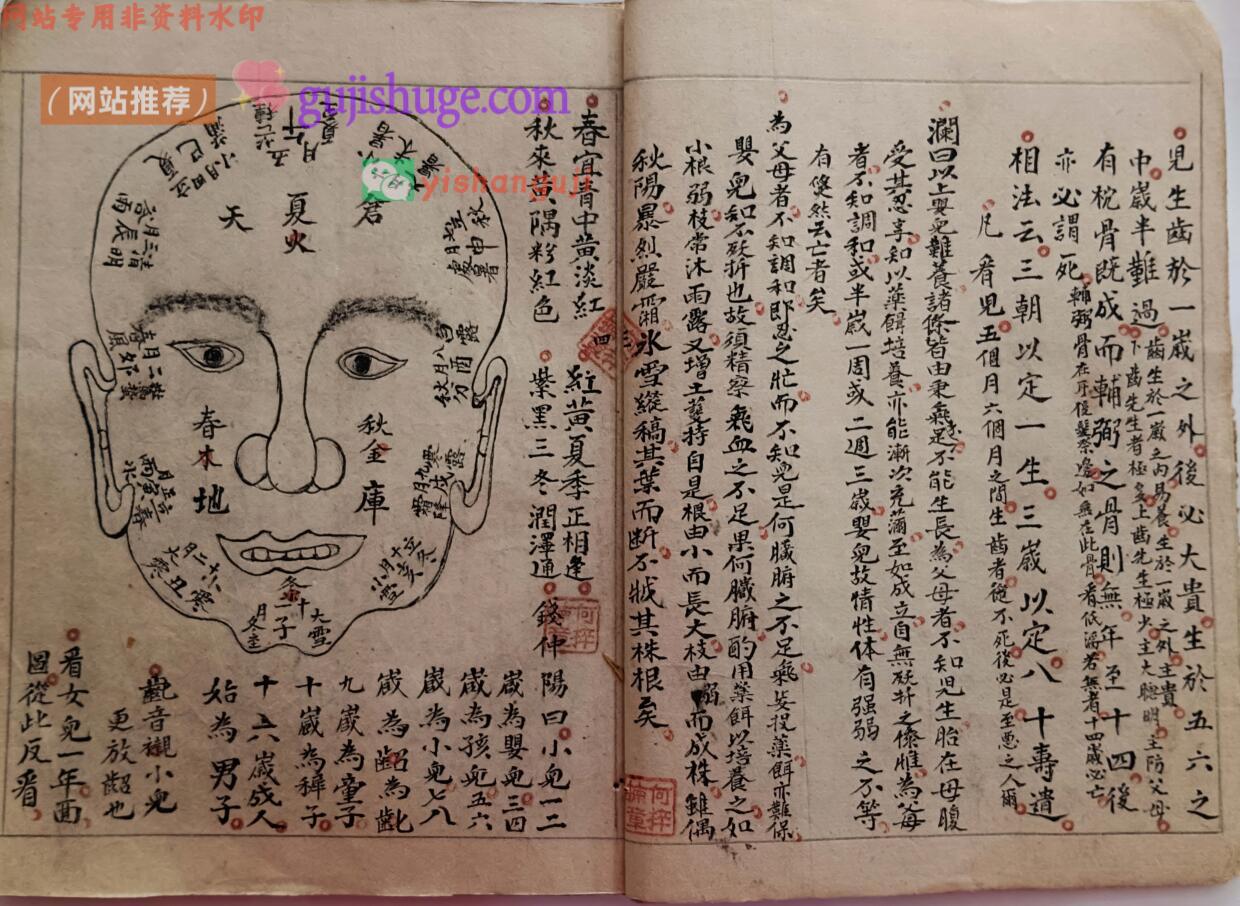 网站专用非资料水印
（网站推荐）
gujishuge.com
yishanguji
兒生齒於一歲之外後必大貴生於五六之
中歲半難過
齒生於一歲之內易養生於一歲之外主貴
下齒先生者極多上齒先生極少主大聰明主防父母
有枕骨既成而輔弼之骨則無年至十四後
亦必謂死
輔弼骨在耳後髮際邊如無在此骨者低濕者無者十四歲必亡
相法云三朝以定一生三歲以定八十壽遺
凡看兒五個月六個月之間生齒者從不死後必是至惡之人爾
瀾曰以上嬰兒難養諸條皆由秉氣足不能生長為父母者不知兒生胎在母腹
受其忍享知以藥餌培養亦能漸次充滿至如成立自無殀折之條惟為父母
者不知調和或半歲一周或二週三歲嬰兒故情性体有强弱之不等
有傻然云亡者矣
為父母者不知調和即忍之壯而不知兒是何臟腑之不足氣妄投藥餌亦難保
嬰兒知不殀折也故須精察氣血之不足果何臟腑酌用藥餌以培養之如
小根弱枝常沐雨露又增土孽持自是根由小而長大枝由弱而成株雖偶
秋陽暴烈嚴霜氷雪縱稿其葉而断不戕其株根矣
春宜青中黄淡紅
紅黄夏季正相逢
秋來黄隅粉紅色
紫黑三冬潤澤通
錢仲
陽曰小兒一二
歲為嬰兒三四
歲為孩兒五六
歲為小兒七八
歲為齠為齔
九歲為童子
十歲為穉子
十六歲成人
始為男子
觀音襯小兒
更放齠也
看女兒一年面
圖從此反看
君
夏火
天
秋金
庫
春木
地
五月午
芒種
夏至
大暑
四月巳
立夏
三月辰
清明
谷雨
二月卯
驚蟄
春分
正月寅
立春
雨水
十二月丑
大寒
冬十一月子
大雪
冬至
十月亥
立冬
小雪
九月戌
寒露
霜降
八月酉
白露
秋分
七月申
立秋
處暑
何梓